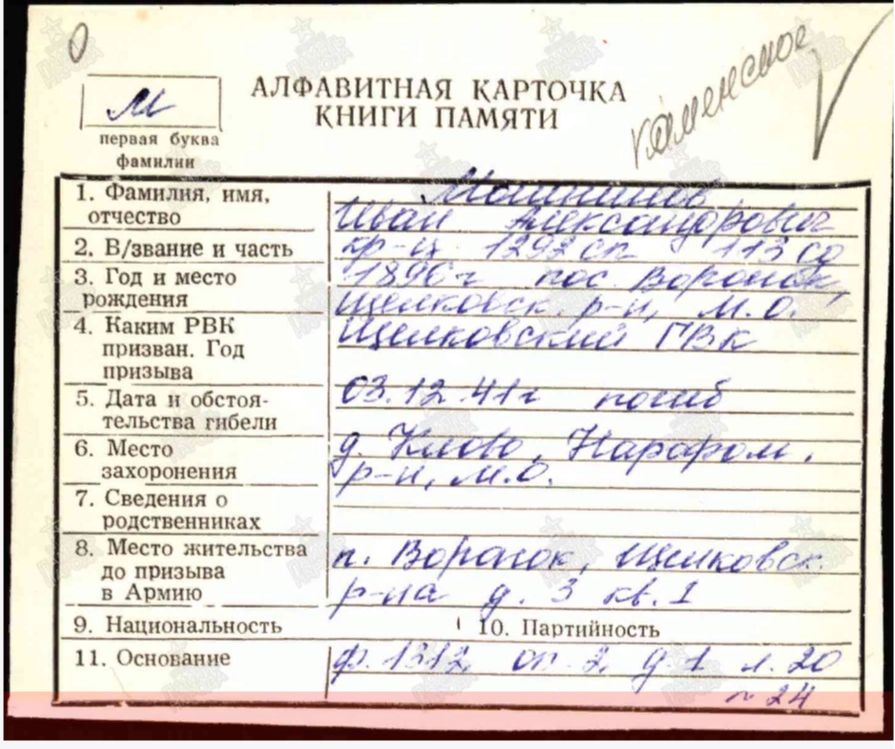 0
Каменское
М
первая буква
фамилии
АЛФАВИТНАЯ КАРТОЧКА
КНИГИ ПАМЯТИ
1. Фамилия, имя,
отчество
Иван Александрович
2. В/звание и часть
кр-ц 1292 сп 113 сд
3. Год и место
рождения
1896 г пос. Воронок,
Щелковск. р-н, М.О.
4. Каким РВК
призван. Год
призыва
Щелковский ГВК
5. Дата и обстоя-
тельства гибели
03.12.41г погиб
6. Место
захоронения
д. Клово, Нарофом.
р-н, М.О.
7. Сведения о
родственниках
8. Место жительства
до призыва
в Армию
п. Воронок, Щелковск.
р-на д. 3 кв. 1
9. Национальность
10. Партийность
11. Основание
ф. 1312, оп. 2, д. 1 л. 20
24